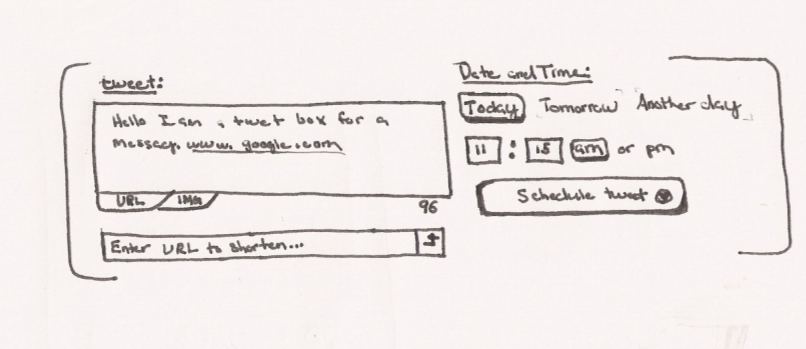 tweet:
Hello I am a twet box for a
Message. www.google.com
URL IMG
96
Enter URL to shorten...
Date and Time:
Today Tomorrow Another day
11 : 15 am or pm
Schedule tweet